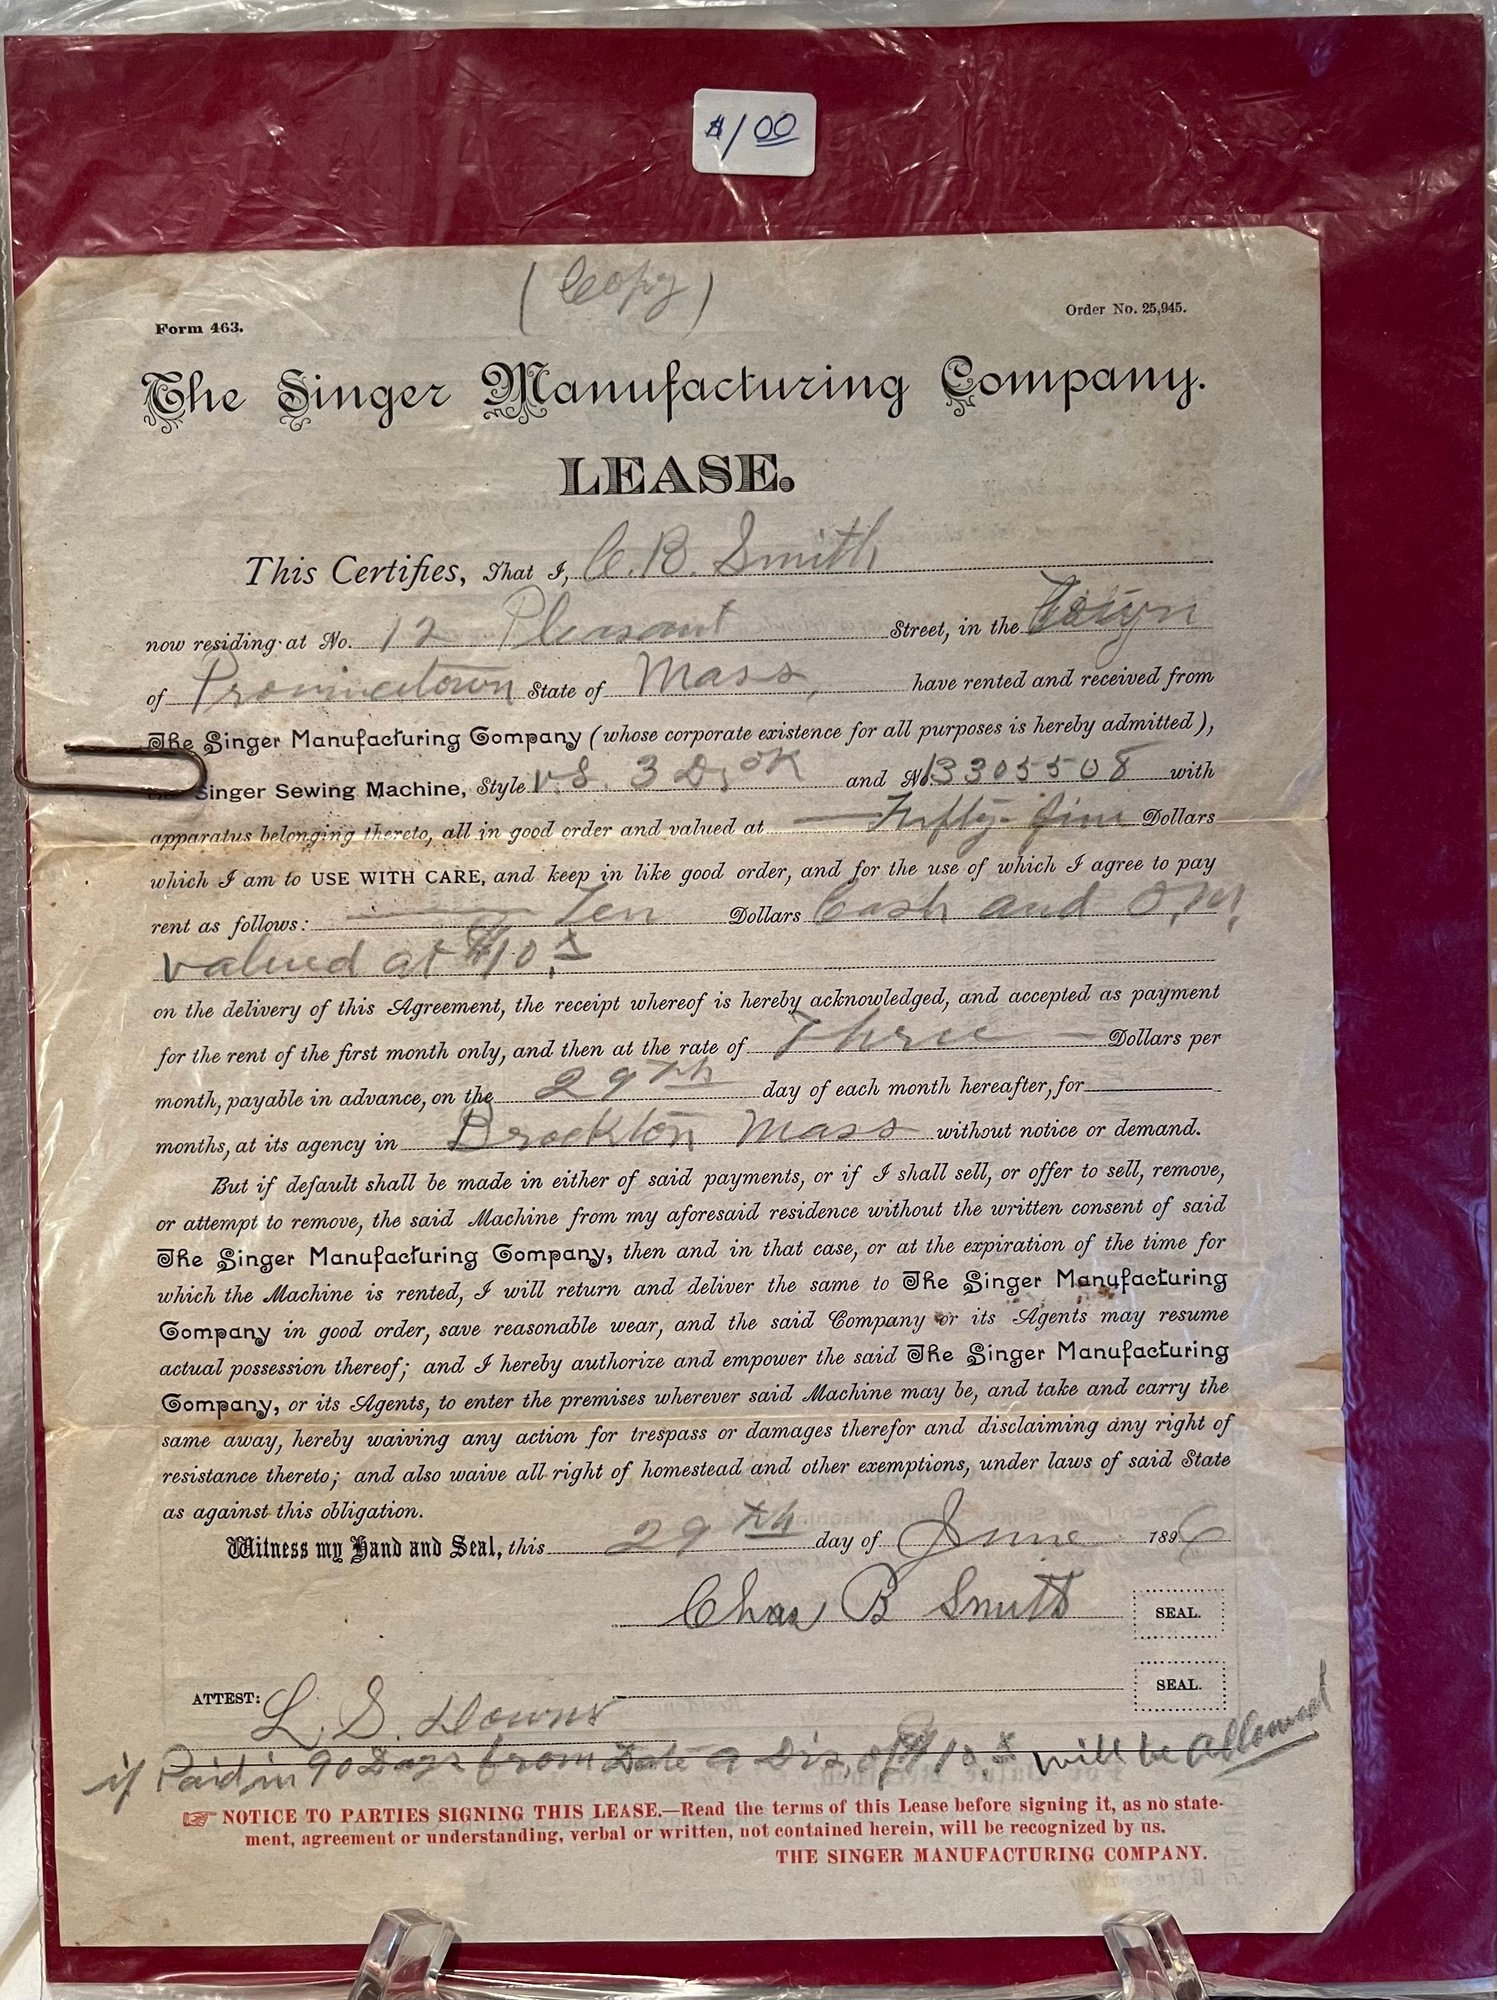 $1.00
(Copy)
Form 463.
Order No. 25,945.
The Singer Manufacturing Company.
LEASE.
This Certifies, That I, C. B. Smith
now residing at No. 12 Pleasant Street, in the Town
of Provincetown State of Mass, have rented and received from
The Singer Manufacturing Company (whose corporate existence for all purposes is hereby admitted),
Singer Sewing Machine, Style V.S. 3 D, OK and No. 13305508 with
apparatus belonging thereto, all in good order and valued at Fifty-five Dollars
which I am to USE WITH CARE, and keep in like good order, and for the use of which I agree to pay
rent as follows: Ten Dollars Cash and O.M.
valued at $10.
on the delivery of this Agreement, the receipt whereof is hereby acknowledged, and accepted as payment
for the rent of the first month only, and then at the rate of Three Dollars per
month, payable in advance, on the 29th day of each month hereafter, for
months, at its agency in Brockton Mass without notice or demand.
But if default shall be made in either of said payments, or if I shall sell, or offer to sell, remove,
or attempt to remove, the said Machine from my aforesaid residence without the written consent of said
The Singer Manufacturing Company, then and in that case, or at the expiration of the time for
which the Machine is rented, I will return and deliver the same to The Singer Manufacturing
Company in good order, save reasonable wear, and the said Company or its Agents may resume
actual possession thereof; and I hereby authorize and empower the said The Singer Manufacturing
Company, or its Agents, to enter the premises wherever said Machine may be, and take and carry the
same away, hereby waiving any action for trespass or damages therefor and disclaiming any right of
resistance thereto; and also waive all right of homestead and other exemptions, under laws of said State
as against this obligation.
Witness my Hand and Seal, this 29th day of June 1896
Chas B Smith SEAL.
SEAL.
ATTEST: L. S. Downs
if Paid in 90 Days from Date a Dis, of $10. will be allowed
☞ NOTICE TO PARTIES SIGNING THIS LEASE.—Read the terms of this Lease before signing it, as no state-
ment, agreement or understanding, verbal or written, not contained herein, will be recognized by us.
THE SINGER MANUFACTURING COMPANY.